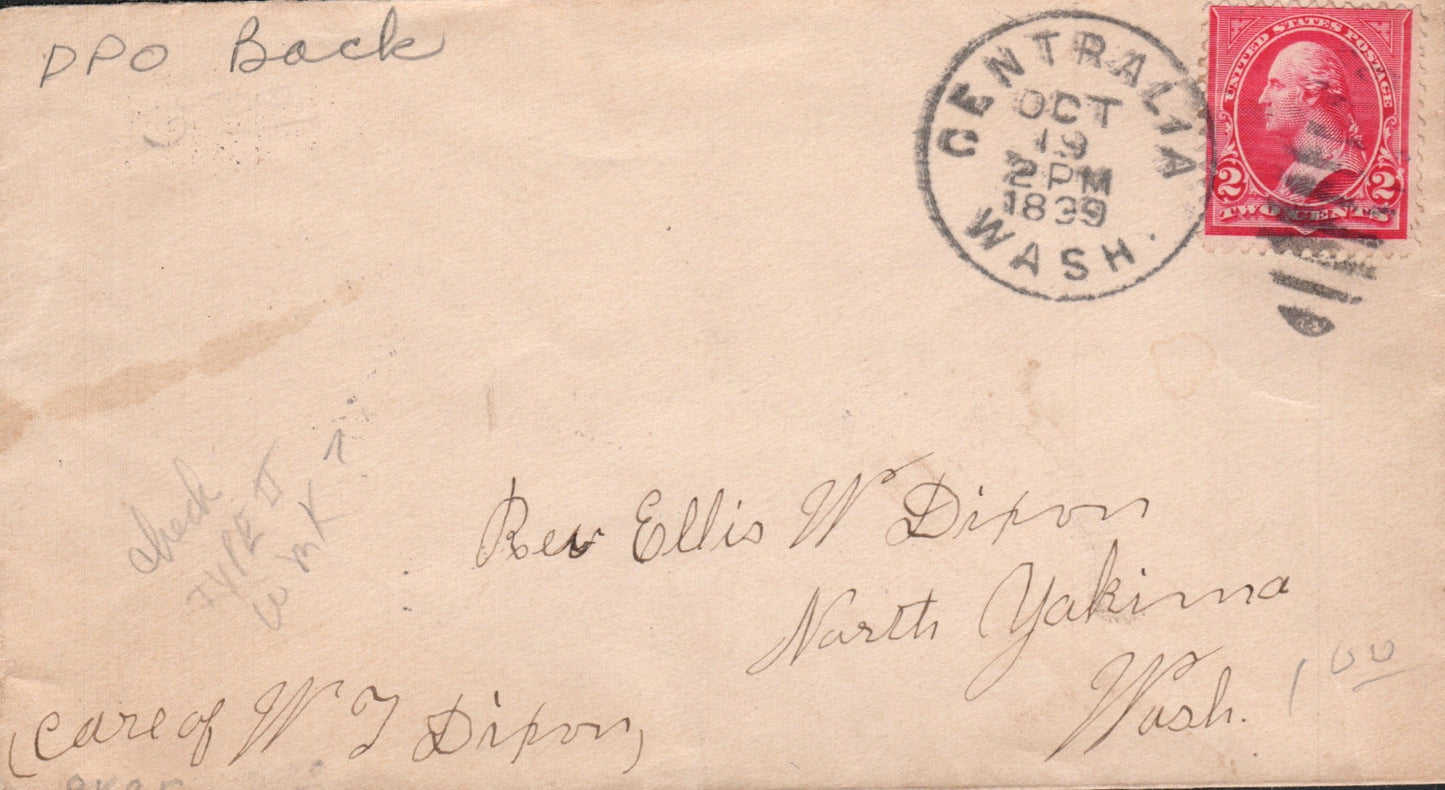 DPO Back
CENTRALIA
OCT
19
2 PM
1899
WASH.
UNITED STATES POSTAGE
2 2
TWO CENTS
check
TYPE II
WMK ?
Rev Ellis W Dixon
North Yakima
Wash.
1 00
(care of W T Dixon)